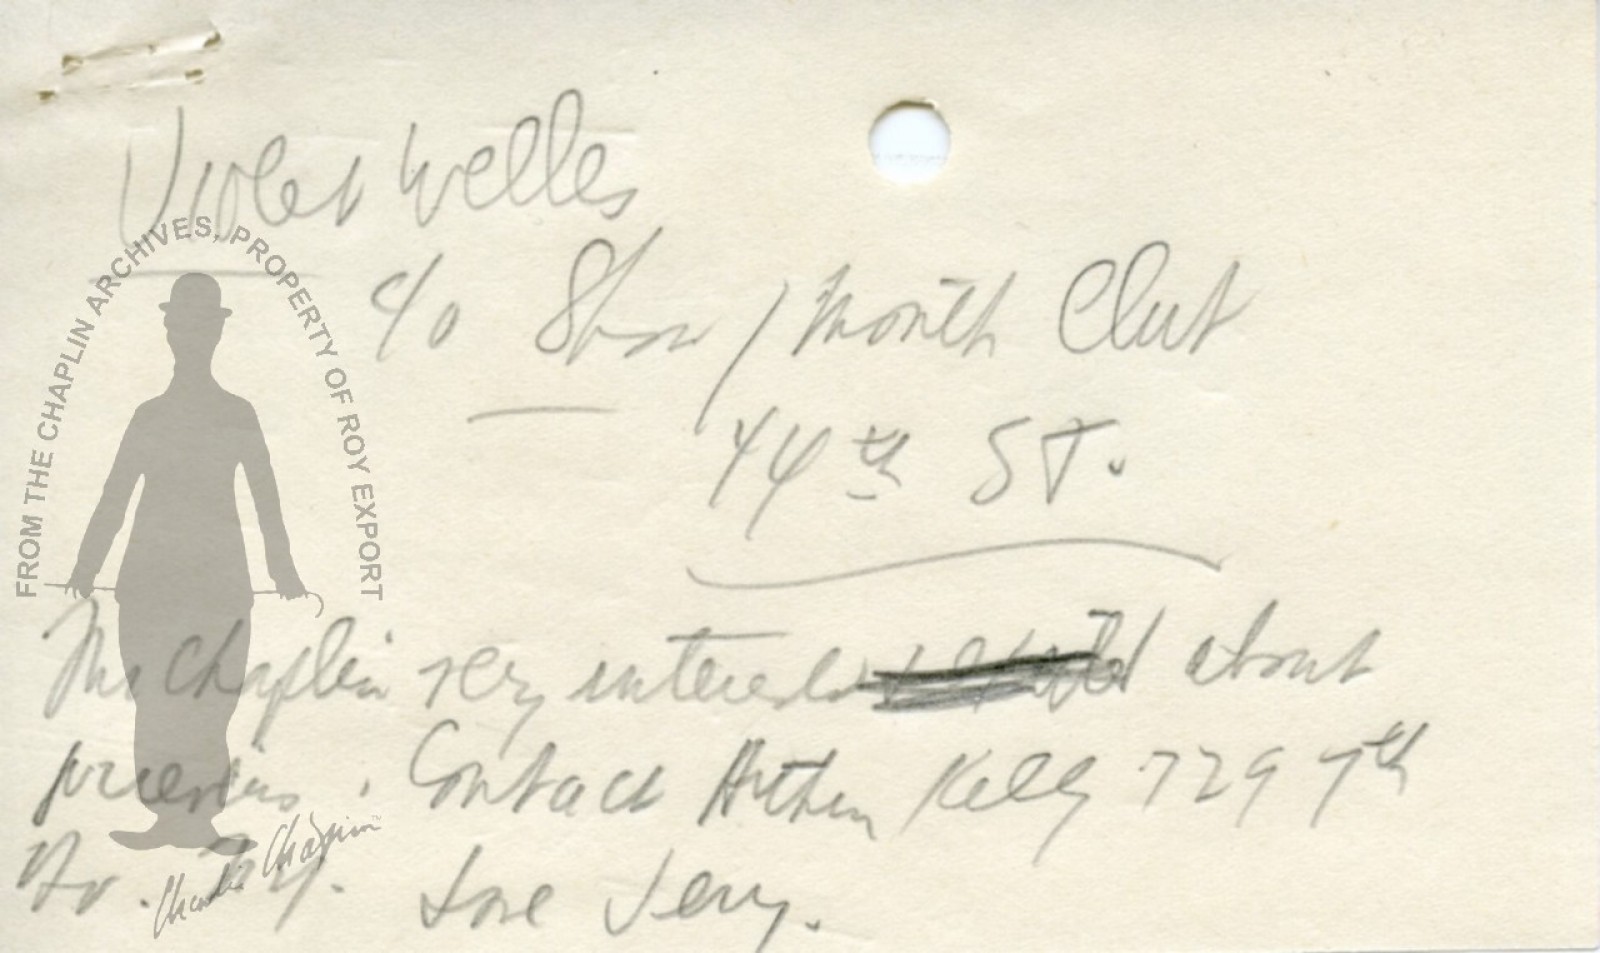 Violet Welles
c/o Show / Month Club
44th ST.
Mr Chaplin very interested about
previews. Contact Arthur Kelly 729 7th
Av. N.Y. Love Jerry.
FROM THE CHAPLIN ARCHIVES, PROPERTY OF ROY EXPORT
Charlie Chaplin™